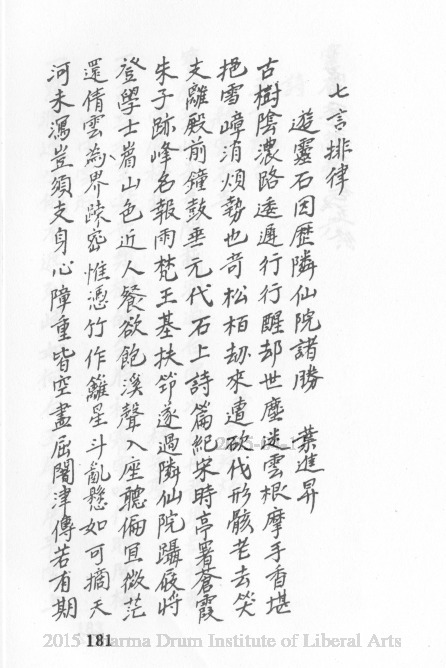 七言排律
遊靈石因歷隣仙院諸勝 葉進昇
古樹陰濃路逶遲行行醒却世塵迷雲根摩手香堪
挹雪嶂消煩勢也奇松栢刼來遭砍伐形骸老去笑
支離殿前鐘鼓垂元代石上詩篇紀宋時亭署蒼霞
朱子跡峰名報雨梵王基扶笻遂過隣仙院躡屐將
登學士嵓山色近人餐欲飽溪聲入座聽偏宜微茫
還倩雲為界疎密惟憑竹作籬星斗亂懸如可摘天
河未瀉豈須支身心障重皆空盡屈閣津傳若有期
181
2015 Dharma Drum Institute of Liberal Arts